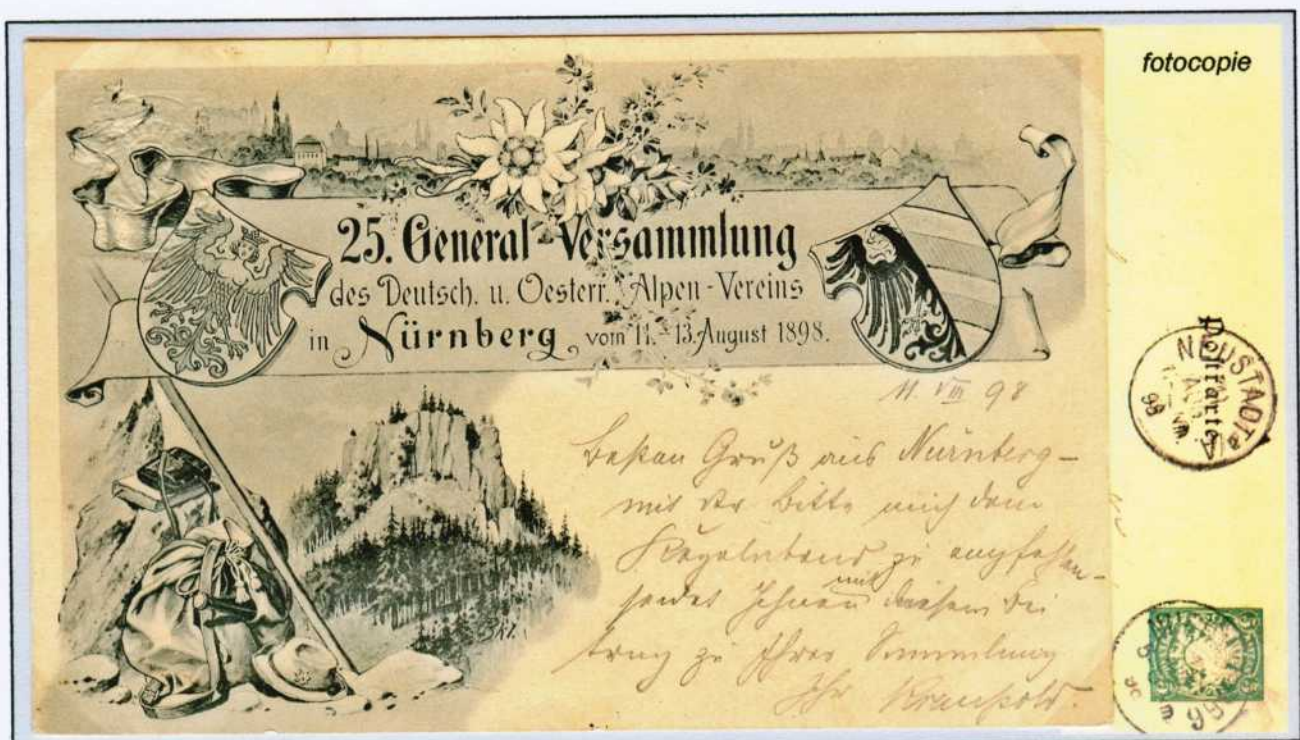 fotocopie
25. General-Versammlung
des Deutsch. u. Oesterr. Alpen-Vereins
in Nürnberg vom 11.-13. August 1898.
11. VIII 98
Besten Gruß aus Nürnberg -
mit der Bitte mich dem
Kegelabend zu empfehlen -
sendet Ihnen mit diesem Bei
trag zu Ihrer Sammlung
Ihr
Postkarte
NEUSTADT
AUG
98